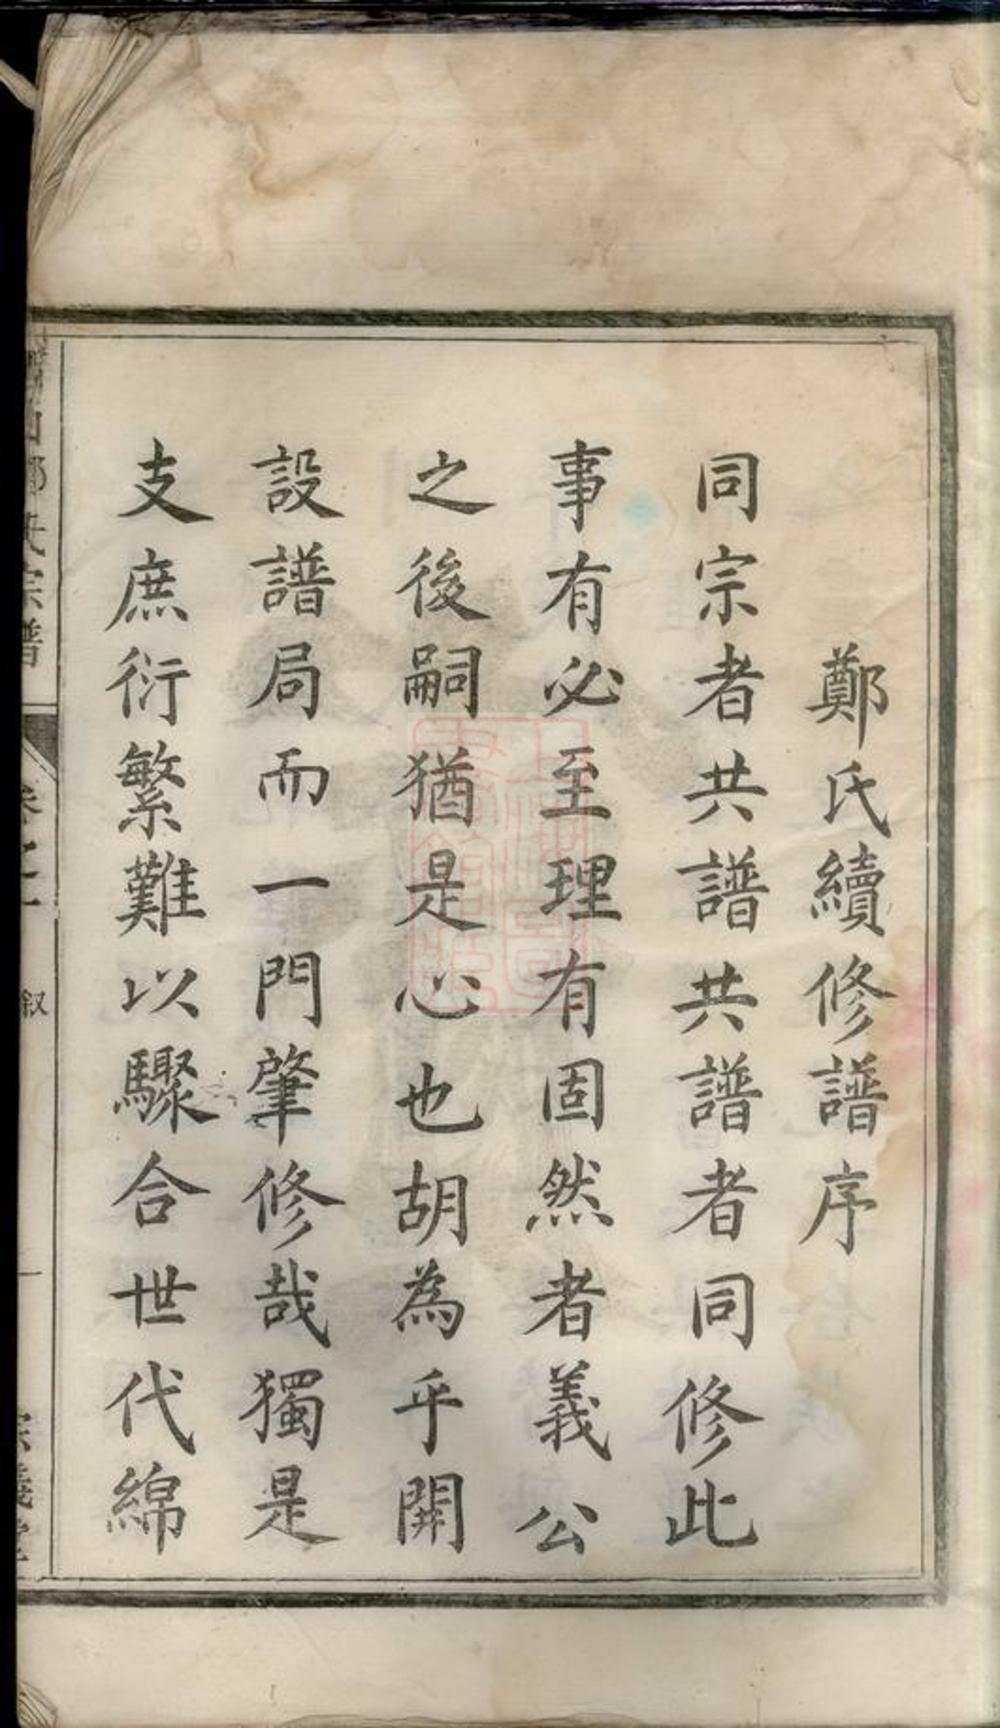 鄭氏續修譜序
同宗者共譜共譜者同修此
事有必至理有固然者義公
之後嗣猶是心也胡為乎開
設譜局而一門肇修哉獨是
支庶衍繁難以驟合世代綿
氏宗譜
卷之一
叙
一